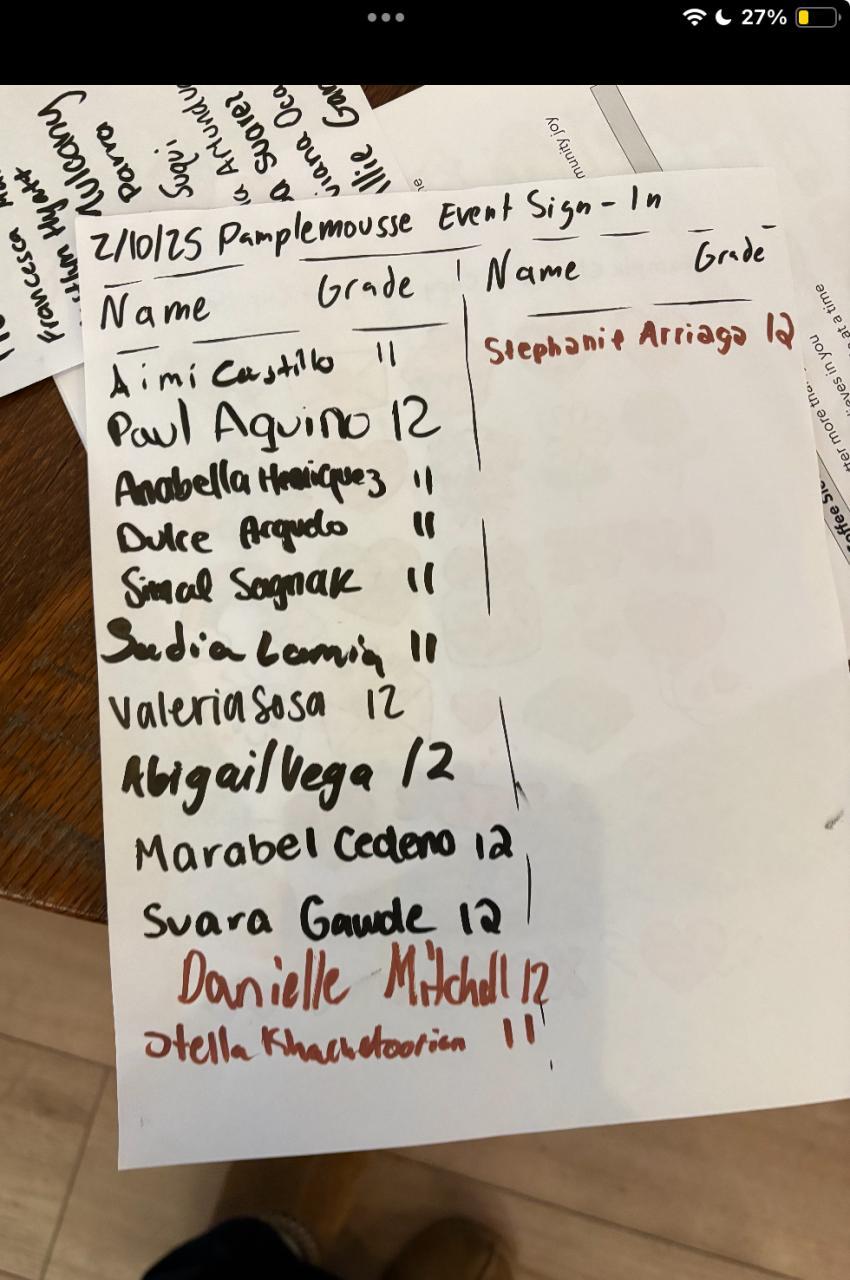 27%
Francesca
Hyatt
Parra
Suqui
Suarez
munity joy
2/10/25 Pamplemousse Event Sign-In
Name Grade
Aimi Castillo 11
Paul Aquino 12
Anabella Henriquez 11
Dulce Argudo 11
Simal Sagnak 11
Sadia Lamia 11
Valeria Sosa 12
Abigail Vega 12
Marabel Cedeno 12
Svara Gawde 12
Danielle Mitchell 12
Stella Khachatoorian 11
Name Grade
Stephanie Arriaga 12
at a time
eves in you
tter more tha